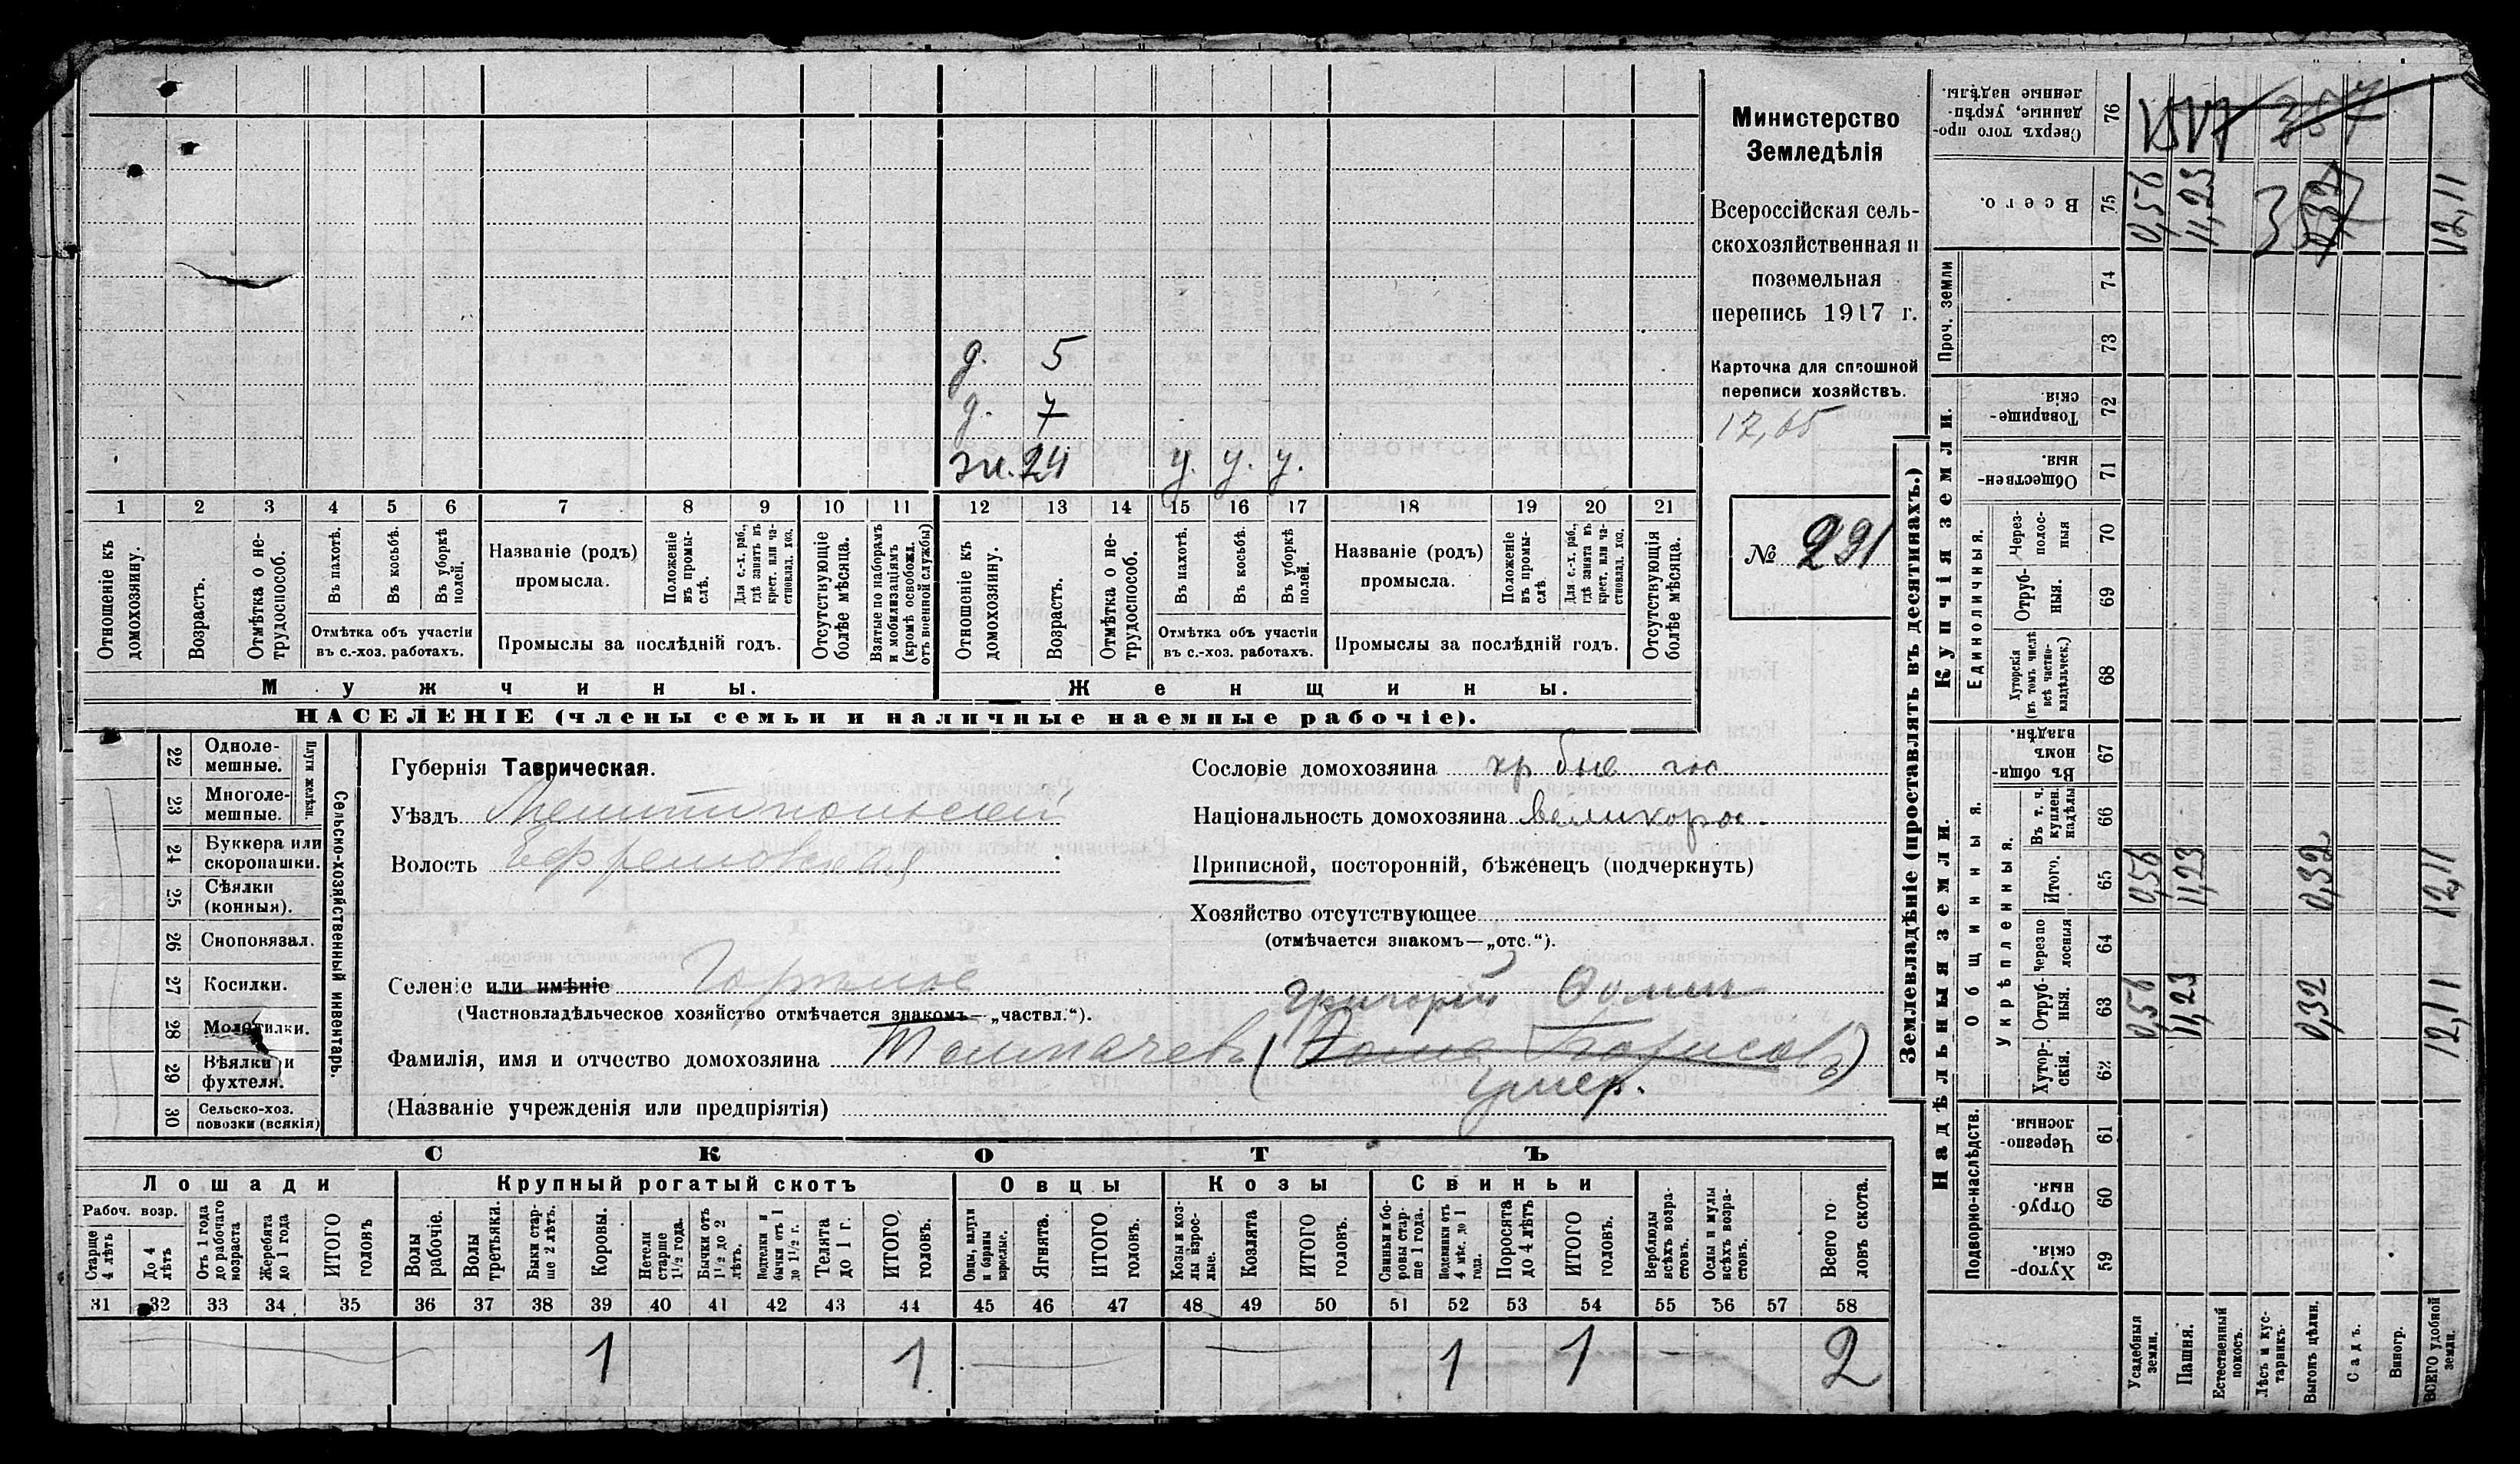 Министерство
Земледѣлія
Всероссійская сель-
скохозяйственная и
поземельная
перепись 1917 г.
Карточка для сплошной
переписи хозяйствъ.
12,65
№ 291
д. 5
д. 7
ж. 24 у. у. у.
1 2 3 4 5 6 7 8 9 10 11 12 13 14 15 16 17 18 19 20 21
Отношеніе къ домохозяину.
Возрастъ.
Отмѣтка о не-трудоспособ.
Въ пахотѣ.
Въ косьбѣ.
Въ уборкѣ полей.
Отмѣтка объ участіи
въ с.-хоз. работахъ.
Названіе (родъ)
промысла.
Положеніе въ промы-слѣ.
Для с.-х. раб., гдѣ занятъ въ крест. или ча-стновлад. хоз.
Промыслы за послѣдній годъ.
Отсутствующіе болѣе мѣсяца.
Взятые по наборамъ и мобилизаціямъ (кромѣ освобожд. отъ военной службы)
Отношеніе къ домохозяину.
Возрастъ.
Отмѣтка о не-трудоспособ.
Въ пахотѣ.
Въ косьбѣ.
Въ уборкѣ полей.
Отмѣтка объ участіи
въ с.-хоз. работахъ.
Названіе (родъ)
промысла.
Положеніе въ промы-слѣ
Для с.-х. раб., гдѣ занята въ крест. или ча-стновлад. хоз.
Промыслы за послѣдній годъ.
Отсутствующія болѣе мѣсяца.
Мужчины.
Женщины.
НАСЕЛЕНІЕ (члены семьи и наличные наемные рабочіе).
Сельско-хозяйственный инвентарь.
Плуги желѣзн.
22 Одноле-мешные.
23 Многоле-мешные.
24 Буккера или скоропашки.
25 Сѣялки (конныя).
26 Сноповязал.
27 Косилки.
28 Молотилки.
29 Вѣялки и фухтеля.
30 Сельско-хоз. повозки (всякія)
Губернія Таврическая.
Уѣздъ Мелитопольскій
Волость Ефремовская
Селеніе или имѣніе Горькое
(Частновладѣльческое хозяйство отмѣчается знакомъ—„частвл.“).
Григорій Фомин
Фамилія, имя и отчество домохозяина Толмачевъ (Фома Борисовъ)
умер.
(Названіе учрежденія или предпріятія)
Сословіе домохозяина кр быв гос
Національность домохозяина великорос.
Приписной, посторонній, бѣженецъ (подчеркнуть)
Хозяйство отсутствующее
(отмѣчается знакомъ—„отс.“).
СКОТЪ
Лошади
Крупный рогатый скотъ
Овцы
Козы
Свиньи
Рабоч. возр.
Старше 4 лѣтъ
До 4 лѣтъ
Отъ 1 года до рабочаго возраста
Жеребята до 1 года
ИТОГО головъ
Волы рабочіе.
Волы третьяки.
Быки стар-ше 2 лѣтъ.
Коровы.
Нетели старше 1½ года.
Бычки отъ 1½ до 2 лѣтъ.
Подтелки и бычки отъ 1 до 1½ г.
Телята до 1 г.
ИТОГО головъ.
Овцы, валухи и бараны взрослые.
Ягнята.
ИТОГО головъ.
Козы и коз-лы взрос-лые.
Козлята
ИТОГО головъ.
Свиньи и бо-ровы стар-ше 1 года.
Подсвинки отъ 4 мѣс. до 1 года.
Поросята до 4 лѣтъ
ИТОГО головъ.
Верблюды всѣхъ возра-стовъ.
Ослы и мулы всѣхъ возра-стовъ.
Всего го ловъ скота.
31 32 33 34 35 36 37 38 39 40 41 42 43 44 45 46 47 48 49 50 51 52 53 54 55 56 57 58
1 1 1 1 2
Землевладѣніе (проставлять въ десятинахъ.)
Купчія земли.
Надѣльныя земли.
Проч. земли
Единоличныя.
Общинныя.
Укрѣпленныя.
Подворно-наслѣдств.
76 Сверхъ того про-данные, укрѣп-ленные надѣлы.
75 Всего. 0,56 11,23 12,11
74
73
72 Товарище-скія
71 Обществен-ныя.
70 Через-полос-ныя
69 Отруб-ныя.
68 Хуторскія (въ томъ числѣ всѣ частно-владѣльческ.)
67 Въ общи-номъ владѣн.
66 Въ т. ч. куплен. надѣлы
65 Итого. 0,56 11,23 0,32 12,11
64 Черезпо лосныя
63 Отруб-ныя. 0,56 11,23 0,32 12,11
62 Хутор-скія.
61 Черезпо-лосныя.
60 Отруб-ныя.
59 Хутор-скія.
Усадебныя земли.
Пашня.
Естественный покосъ.
Лѣсъ и кус-тарникъ.
Выгонъ цѣлин.
Садъ.
Виногр.
ВСЕГО удобной земли.